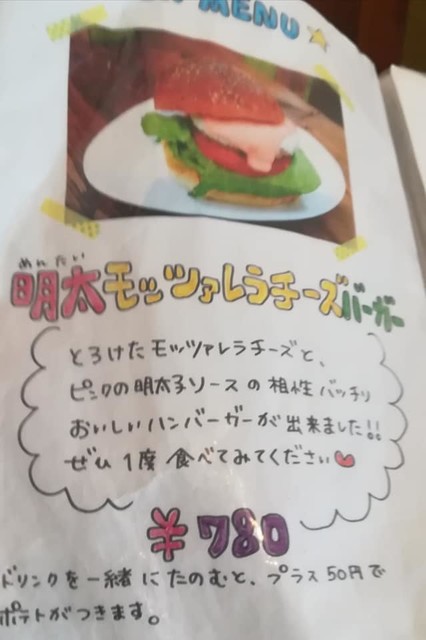 MENU
めんたい
明太モッツァレラチーズバーガー
とろけたモッツァレラチーズと、
ピンクの明太子ソースの相性バッチリ
おいしいハンバーガーが出来ました!!
ぜひ1度食べてみてください
¥780
ドリンクを一緒にたのむと、プラス50円で
ポテトがつきます。